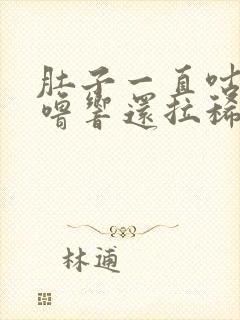 肚子一直咕
嚕響還拉稀
林逋